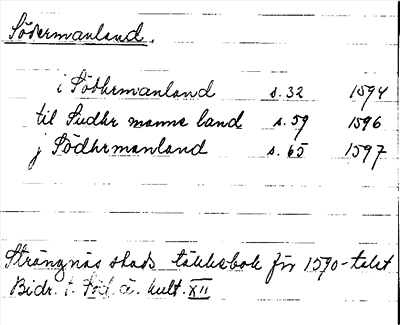 Södermanland.
i Södhrmanland s. 32 1594
til Sudhr manna land s. 59 1596
j Södhrmanland s. 65 1597
Strängnäs stads tänkebok för 1590-talet
Bidr. t. Söd. ä. kult. XII